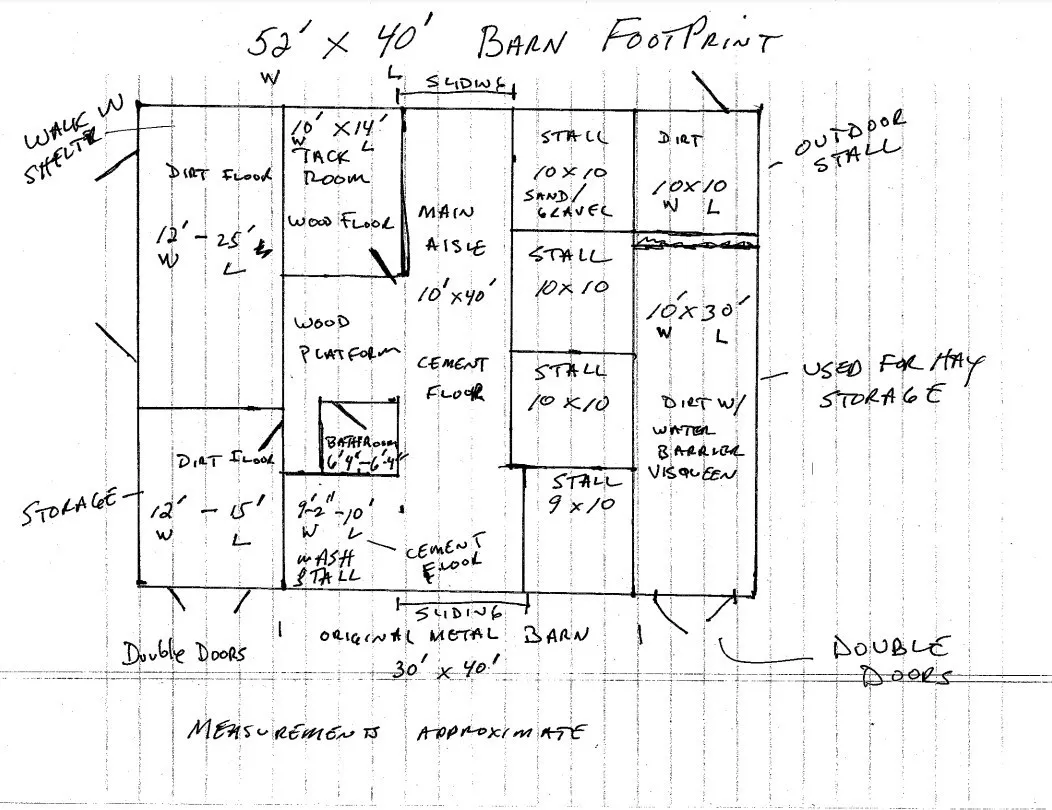 52' X 40' BARN FOOTPRINT
W L
SLIDING
WALK IN
SHELTER
DIRT FLOOR
12' - 25'
W L
10' X 14'
W L
TACK
ROOM
WOOD FLOOR
MAIN
AISLE
10' X 40'
CEMENT
FLOOR
STALL
10 X 10
SAND/
GRAVEL
DIRT
10 X 10
W L
OUTDOOR
STALL
STALL
10 X 10
WOOD
PLATFORM
STALL
10 X 10
10' X 30'
W L
DIRT W/
WATER
BARRIER
VISQUEEN
USED FOR HAY
STORAGE
BATHROOM
6'4" - 6'-4"
STORAGE
DIRT FLOOR
12' - 15'
W L
9'-2" - 10'
W L
WASH
STALL
CEMENT
FLOOR
STALL
9 X 10
SLIDING
Double Doors
ORIGINAL METAL BARN
30' X 40'
DOUBLE
DOORS
MEASUREMENTS APPROXIMATE